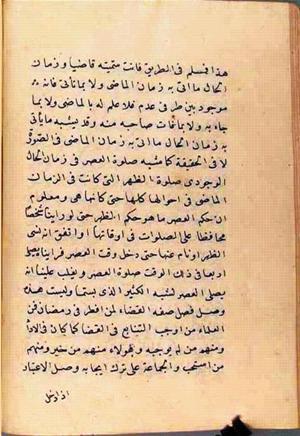 هذا فسلم فى الطريق فانت متميته قاضيا وزمان
الحال ما اتى به زمان الماضى ولا بما تأتى فانه
موجود بين طرفى عدم فلا علم له بالماضى ولا بما
جاء به ولا بما فات صاحبه منه وقد يشبه ما يأتى
به زمان الحال ما اتى به زمان الماضى فى الصورة
لا فى الحقيقة كما تشبه صلوة العصر فى زمان الحال
الوجودى صلوة الظهر التى كانت فى الزمان
الماضى فى احوالها كلها حتى كانها هى ومعلوم
ان حكم العصر ما هو حكم الظهر حتى لو راينا شخصا
محافظا على الصلوات فى اوقاتها او اتفق انه نسى
الظهر او نام عنها حتى دخل وقت العصر فراينا يصلى
اربعا فى ذلك الوقت صلوة العصر ويغلب علينا انه
يصلى العصر لشبه الكثير الذى بينهما وليست هذه
وصل فصل صفة القضاء لمن افطر فى رمضان فمن
العلماء من اوجب التتابع فى القضا كما كان فى الاداء
ومنهم من لم يوجبه وهؤلاء منهم من خير ومنهم
من استحب والجماعة على ترك ايجابه وصل الاعتبار